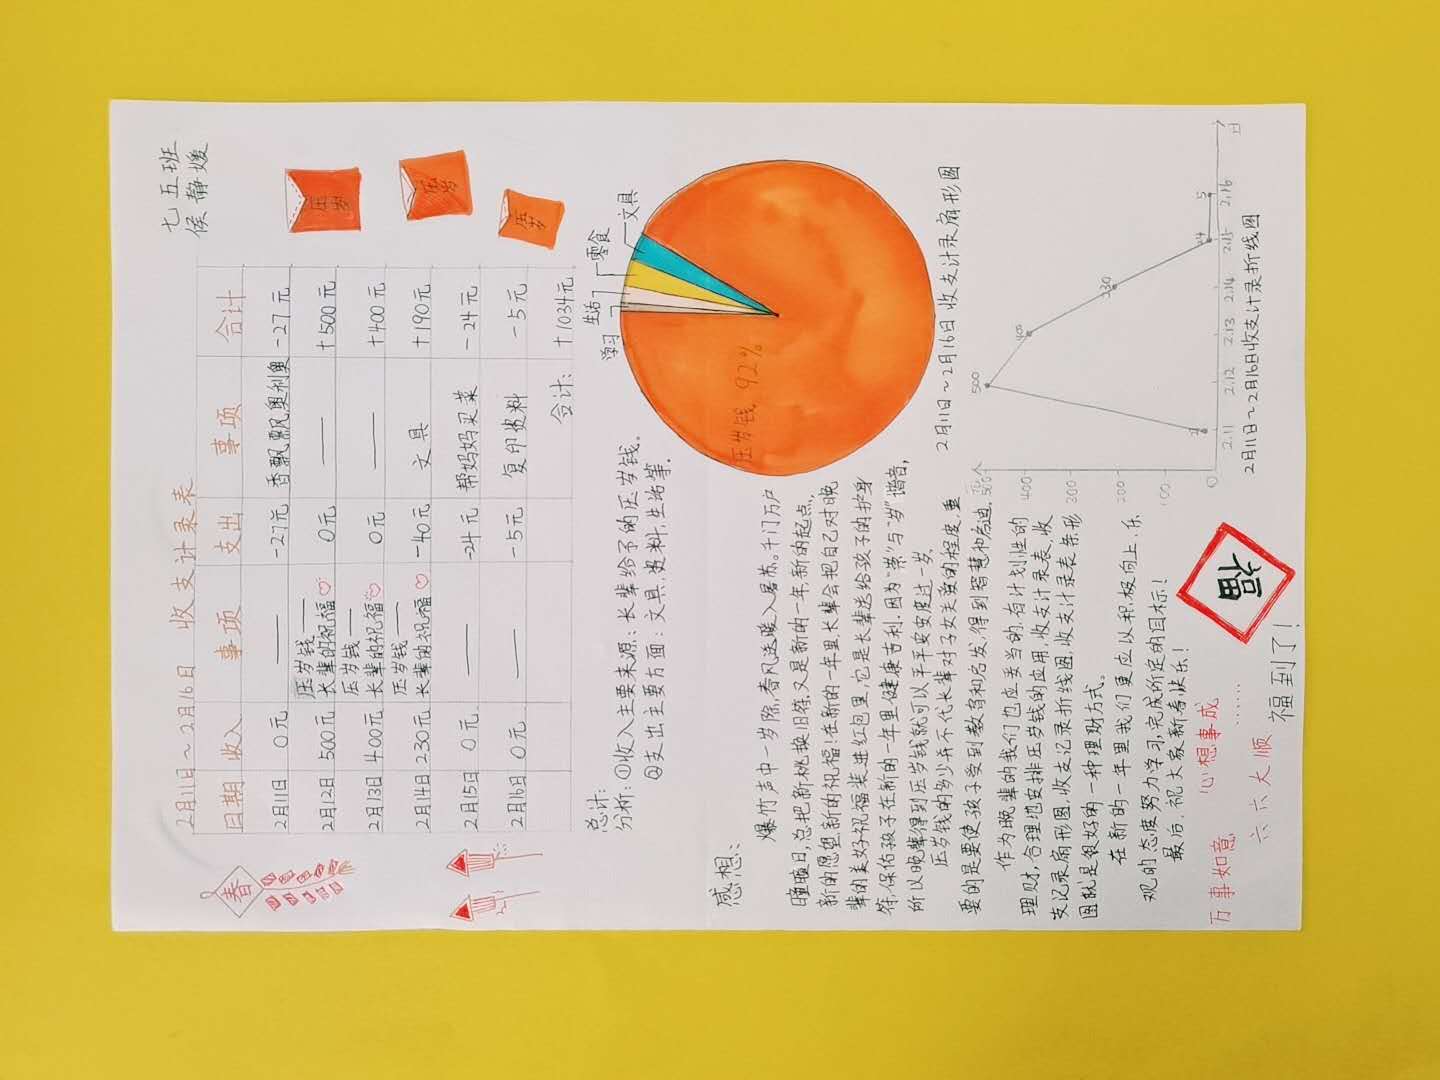 七五班
侯静媛
2月11日~2月16日 收支计录表
日期 收入 事项 支出 事项 合计
2月11日 0元 —— -27元 香飘飘,奥利奥 -27元
2月12日 500元 压岁钱——长辈的祝福♡ 0元 —— +500元
2月13日 400元 压岁钱——长辈的祝福♡ 0元 —— +400元
2月14日 230元 压岁钱——长辈的祝福♡ -40元 文具 +190元
2月15日 0元 —— -24元 帮妈妈买菜 -24元
2月16日 0元 —— -5元 复印资料 -5元
合计: +1034元
春
压岁
压岁
压岁
总计:
分析: ①收入主要来源:长辈给予的压岁钱。
②支出主要方面:文具,资料,生活等。
学习
生活
零食
文具
压岁钱 92%
2月11日~2月16日 收支计录扇形图
感想:
爆竹声中一岁除,春风送暖入屠苏。千门万户
曈曈日,总把新桃换旧符。又是新的一年,新的起点,
新的愿望新的祝福!在新的一年里,长辈会把自己对晚
辈的美好祝福装进红包里,它是长辈送给孩子的护身
符,保佑孩子在新的一年里健康吉利。因为“祟”与“岁”谐音,
所以晚辈得到压岁钱就可以平平安安度过一岁。
压岁钱的多少并不代表长辈对子女关爱的程度,重
要的是要使孩子受到教育和启发,得到智慧和启迪。
作为晚辈的我们也应妥当的,有计划性的
理财,合理地安排压岁钱的应用,收支计录表,收
支记录扇形图,收支记录折线图,收支计录表条形
图就是很好的一种理财方式。
在新的一年里我们更应以积极向上、乐
观的态度努力学习,完成所定的目标!
最后,祝大家新春快乐!
元
500
400
300
200
100
0
500
400
230
24
5
2.11 2.12 2.13 2.14 2.15 2.16 日
2月11日~2月16日收支计录折线图
万事如意 心想事成
六六大顺 ……
福
福到了!